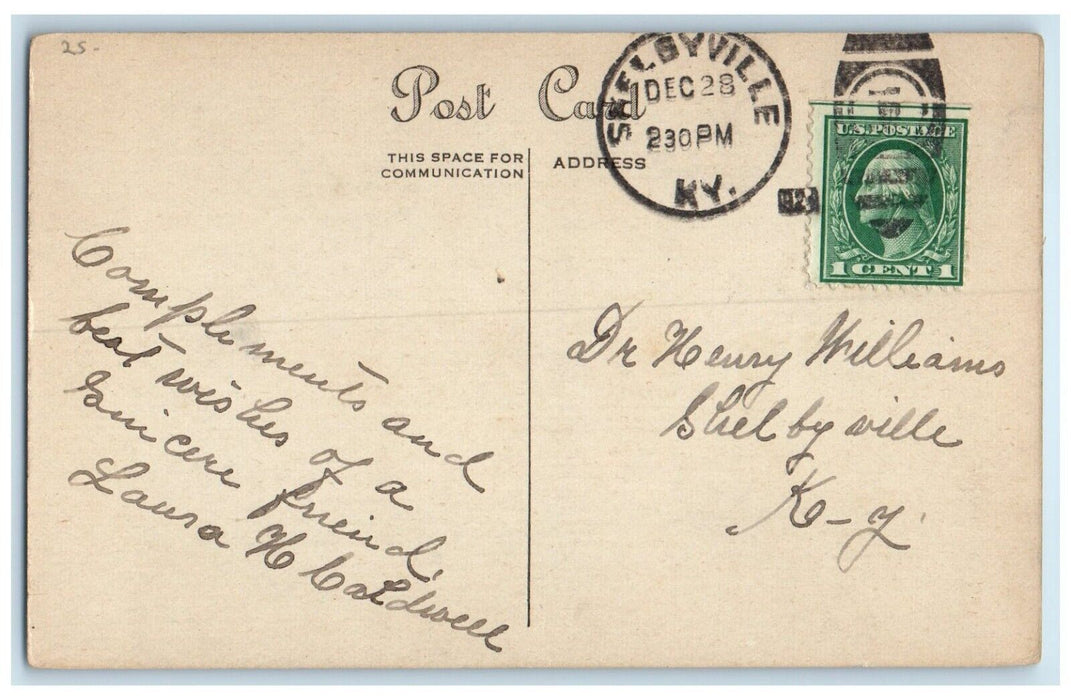 25-
Post Card
SHELBYVILLE
DEC 28
2 30 PM
KY.
U.S. POSTAGE
1 CENT 1
THIS SPACE FOR
COMMUNICATION
ADDRESS
Compliments and
best wishes of a
Sincere freind,
Laura H Caldwell
Dr Henry Williams
Shelbyville
K-y.